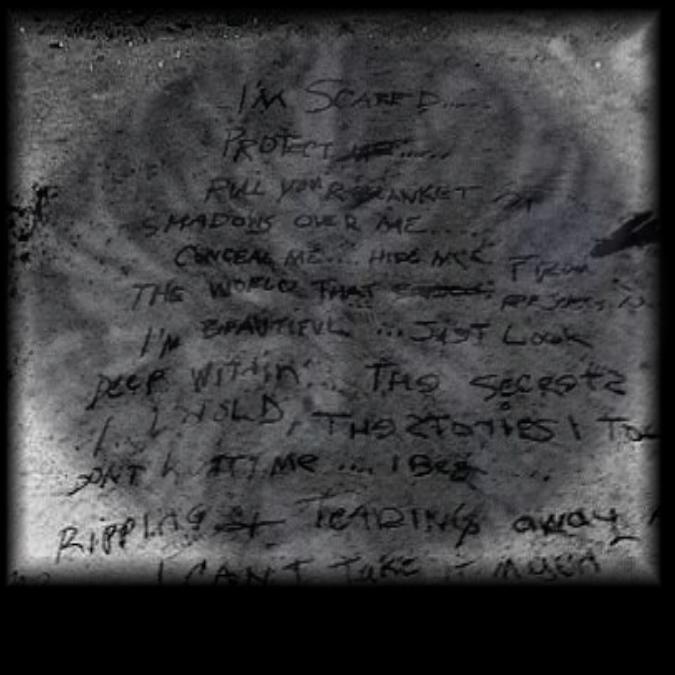 I'M SCARED.....
PROTECT ME......
PULL YOUR BLANKET
SHADOWS OVER ME....
CONCEAL ME.... HIDE ME FROM
THE WORLD THAT
I'M BEAUTIFUL ...JUST LOOK
DEEP WITHIN... THE SECRETS
I HOLD, THE STORIES I
HURT ME .... I BEG ....
RIPPING & TEARING away
I CAN'T Take iT MUCH